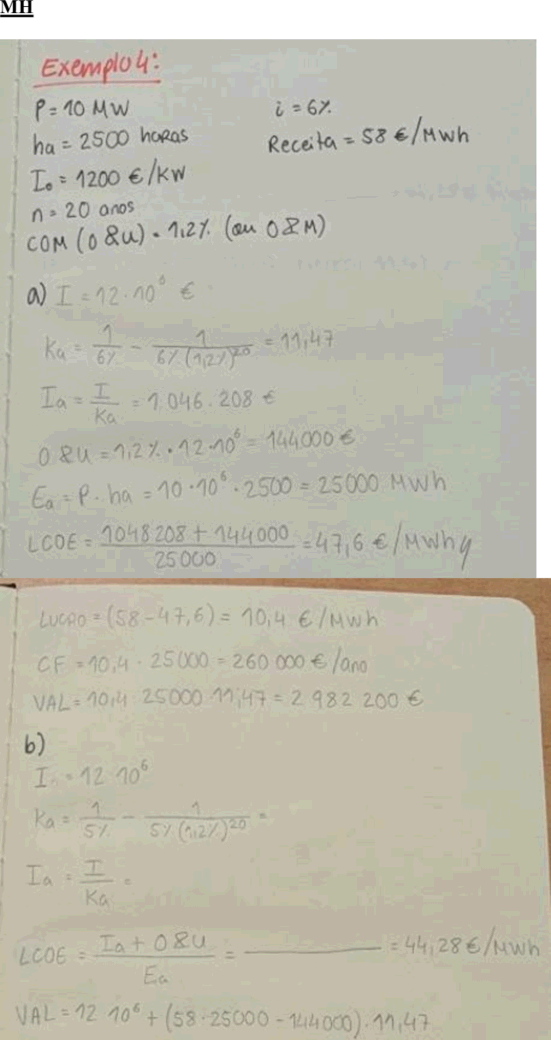 MH
Exemplo 4:
P = 10 MW
i = 6%
ha = 2500 horas
Receita = 58 €/MWh
I₀ = 1200 €/KW
n = 20 anos
COM (O&U) = 1,2% (ou O&M)
a) I = 12·10⁶ €
Ka = 1/6% - 1/6%(1,2%)²⁰ = 11,47
Ia = I/Ka = 1.046.208 €
O&U = 1,2% · 12·10⁶ = 144000 €
Ea = P · ha = 10·10⁶·2500 = 25000 MWh
LCOE = 1048208 + 144000/25000 = 47,6 €/MWh
LUCRO = (58-47,6) = 10,4 €/MWh
CF = 10,4 · 25000 = 260 000 €/ano
VAL = 10,4 · 25000 · 11,47 = 2 982 200 €
b)
I = 12 10⁶
Ka = 1/5% - 1/5%(1,2%)²⁰ =
Ia = I/Ka =
LCOE = Ia + O&U/Ea = = 44,28 €/MWh
VAL = 12 10⁶ + (58·25000 - 144000)·11,47